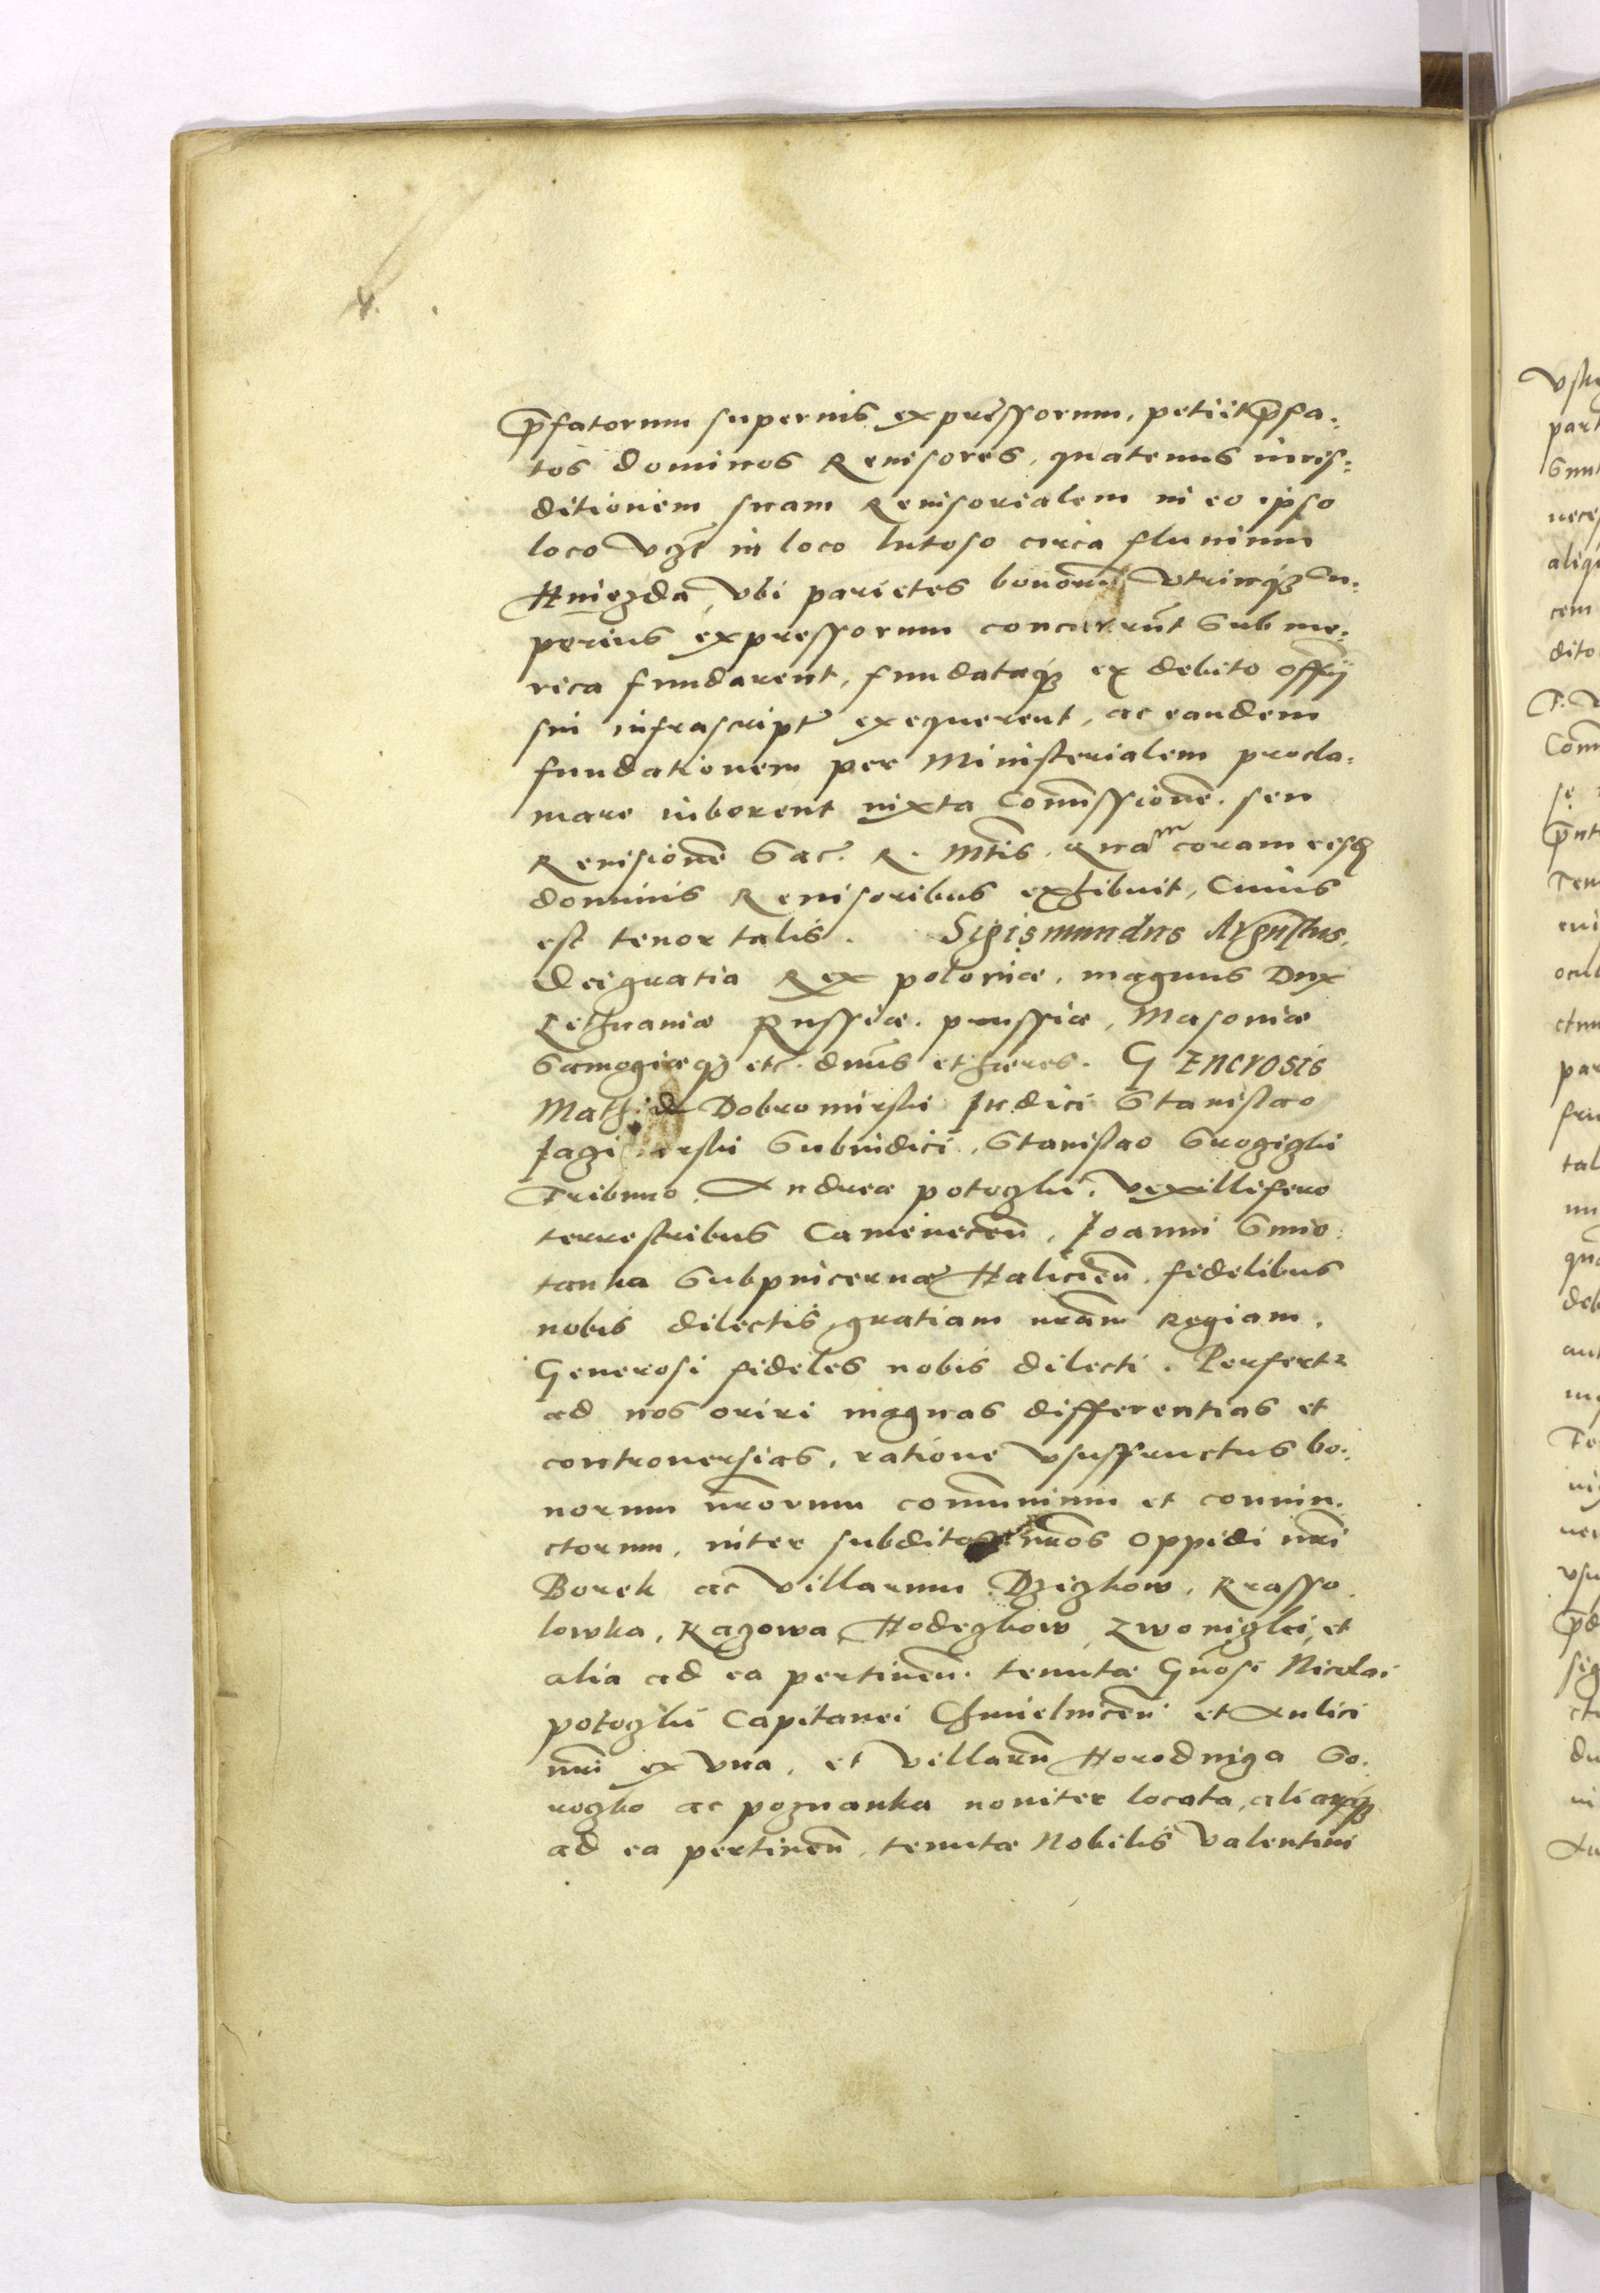 4.
p̄fatorum superius expressorum, petiit p̄fa-
tos dominos Reuisores, quatenus iuris-
ditionem suam Reuisorialem in eo ipso
loco vɀt in loco lutoso circa fluuium
Hniezda, vbi parietes bonorū vtrinqꝫ su-
perius expressorum concurrūt sub me-
rica fundarent, fundataqꝫ ex debito offỹ
sui infrascript exequerent, ac eandem
fundationem per Ministerialem procla-
mare iuberent iuxta Com̄issionē seu
Reuisionē Sac. R. Mt̄is. Quam coram eisd
dominis Reuisoribus exhibuit, Cuius
est tenor talis. Sigismundus Augustus
dei gratia Rex poloniæ, magnus Dux
Lithuaniæ Russiæ, prussiæ, Masouiæ
Samogitiæqꝫ etc. dn̄us et hæres. GEnerosis
Math: de Dobromirski Judici Stanislao
Jagi rski Subiudici, Stanislao
Tribuno, Andreæ potoczki, vexillifero
terrestribus Cameneceñ, Joanni Smio-
tanka Subpincernæ Haliciēn, fidelibus
nobis dilectis, gratiam nr̄am Regiam.
Generosi fideles nobis dilecti. Perfert2
ad nos oriri magnas differentias et
controuersias, ratione vsusfructus bo-
norum nr̄orum com̄unium et coniun-
ctorum, inter subditos nr̄os Oppidi nr̄i
Borek ac Villarum Krasso
lowka, Hodeczkow, et
alia ad ea pertineñ. tenutæ Gn̄osi Nicolai
potoczki Capitanei Chmielnicēn et Aulici
nr̄i ex vna, et villarū Horodnicza So-
roczko ac poznanka nouiter locata, aliarūqꝫ
ad ea pertineñ, tenutæ Nobilis Valentini